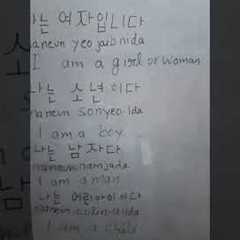 나는 여자입니다
naneun yeojaibnida
I am a girl or woman
나는 소년이다
naneun sonyeo
I am a boy
나는 남자다
naneun namjada
I am a man
나는 어린아이이다
naneun
I am a child